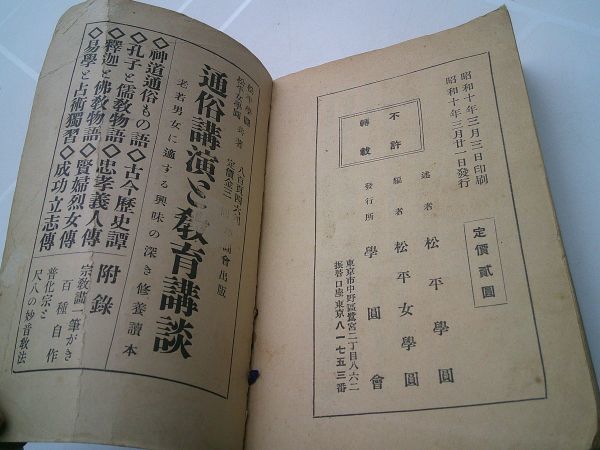 昭和十年三月三日印刷
昭和十年三月廿一日發行
定價貳圓
不許
轉載
述者 松平學圓
編者 松平女學圓
發行所 學圓會
東京市中野區鷺宮二丁目八六二
振替口座東京八一七五三番
松平學圓
松平女學圓 共著
八百頁四六
定價金三
會出版
通俗講演と教育講談
老若男女に適する興味の深き修養讀本
◇神道通俗もの語◇古今歴史譚
◇孔子と儒教物語◇忠孝義人傳
◇釋迦と佛教物語◇賢婦烈女傳
◇易學と占術獨習◇成功立志傳
附錄
宗教畵一筆がき
百種自作
普化宗と
尺八の妙音敎法